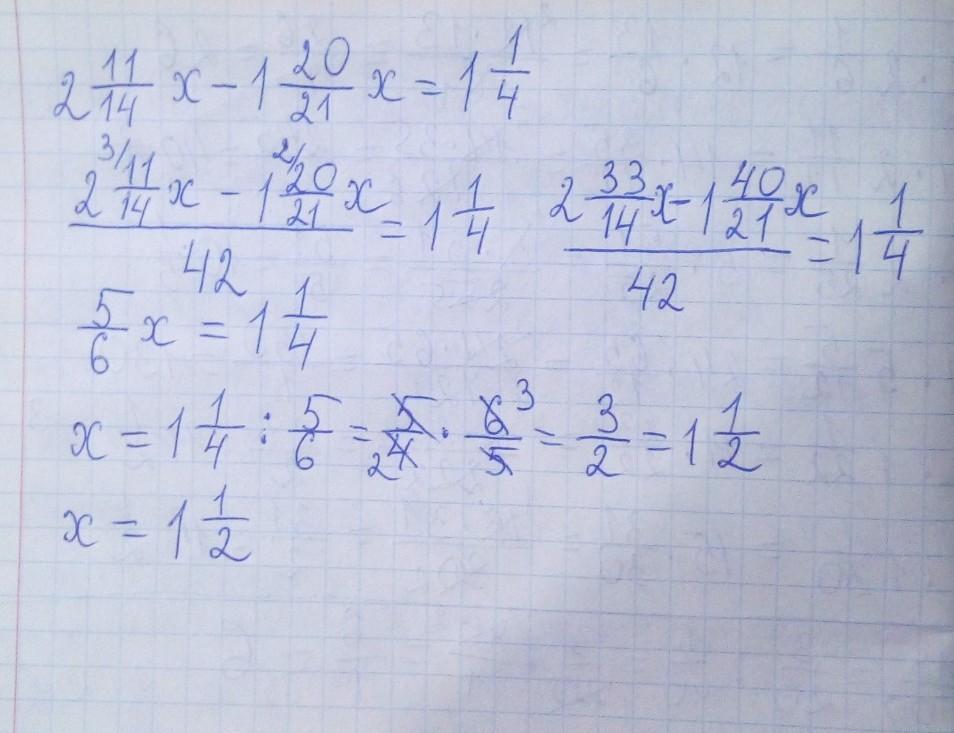 2 11/14 x - 1 20/21 x = 1 1/4
(2 ³/11/14 x - 1 ²/20/21 x)/42 = 1 1/4    (2 33/14 x - 1 40/21 x)/42 = 1 1/4
5/6 x = 1 1/4
x = 1 1/4 : 5/6 = 5/4 2 · 6/5 3 = 3/2 = 1 1/2
x = 1 1/2